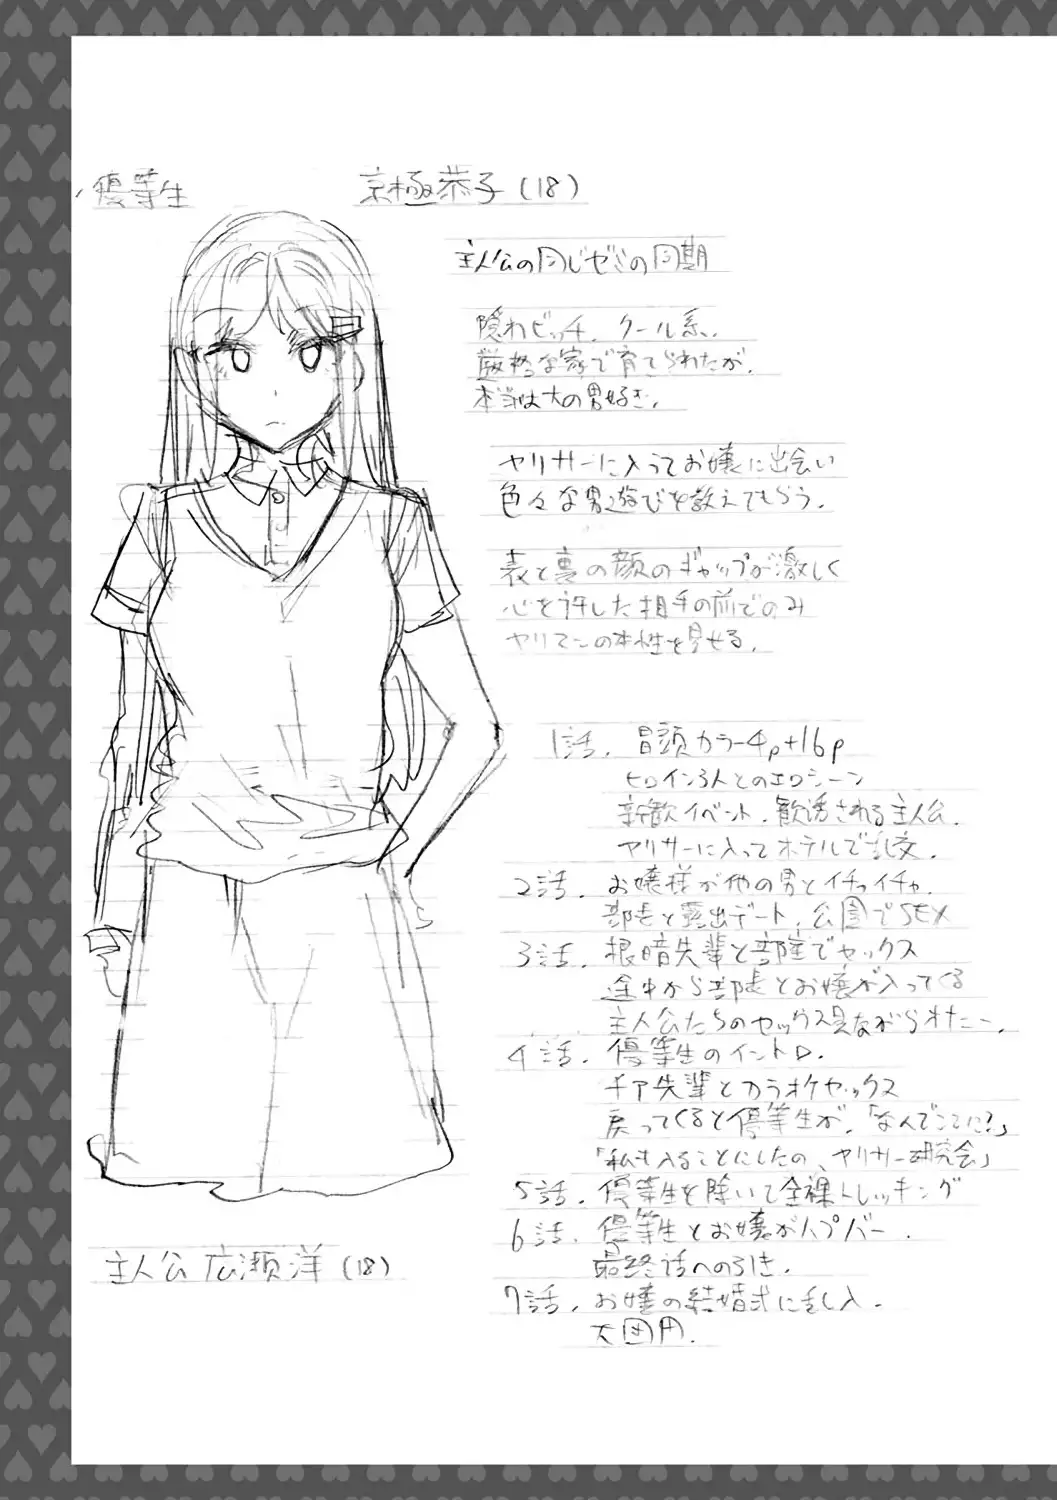 優等生
京極恭子(18)
主人公の同じゼミの同期
隠れビッチ、クール系、
厳格な家で育てられたが、
本当は大の男好き。
ヤリサーに入ってお嬢に出会い
色々な男遊びを教えてもらう。
表と裏の顔のギャップが激しく
心を許した相手の前でのみ
ヤリマンの本性を見せる。
1話. 冒頭カラー4p+16p
ヒロイン3人とのエロシーン
新歓イベント、歓誘される主人公.
ヤリサーに入ってホテルで乱交.
2話. お嬢様が他の男とイチャイチャ.
部長と露出デート、公園でSEX
3話. 根暗先輩と部室でセックス
途中から部長とお嬢が入ってくる
主人公たちのセックス見ながら
4話. 優等生のイントロ.
チア先輩とカラオケセックス
戻ってくると優等生が、「なんでここに?」
「私も入ることにしたの、ヤリサー研究会」
5話. 優等生を除いて全裸トレッキング
6話. 優等生とお嬢がハプバー.
最終話への引き.
7話. お嬢の結婚式に乱入.
大団円.
主人公 広瀬洋(18)